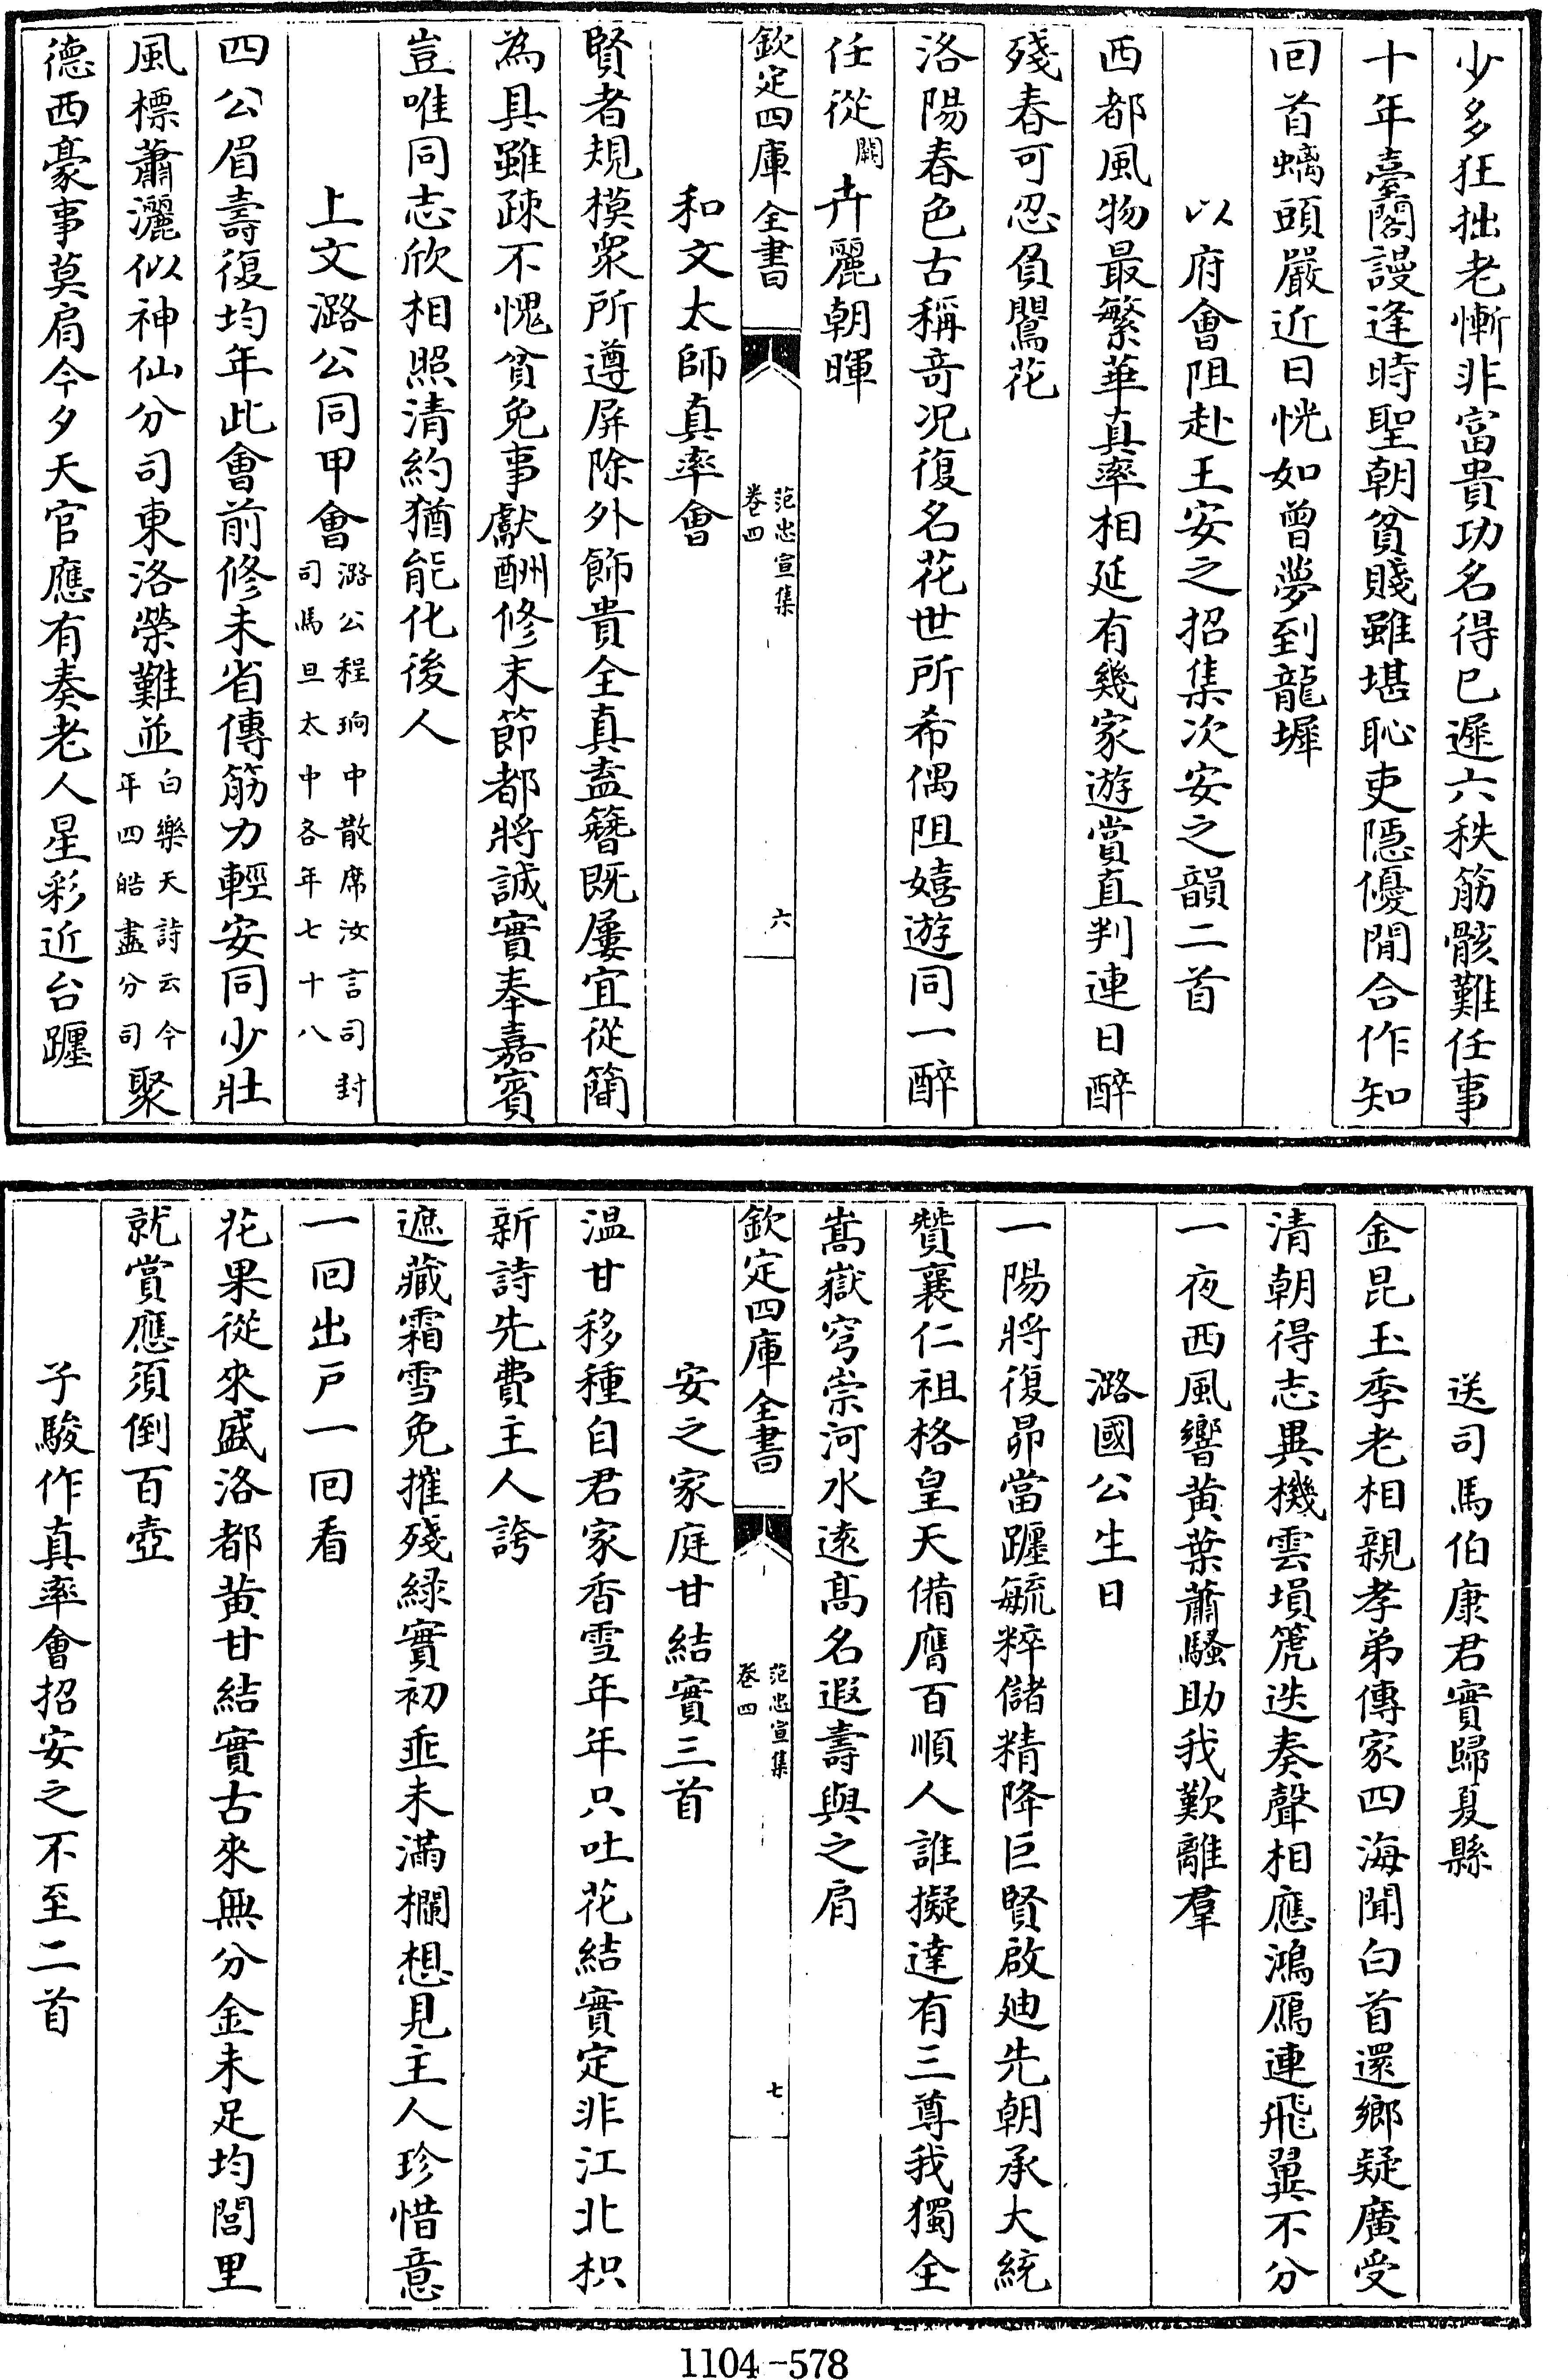 少多狂拙老慚非富貴功名得已遲六秩筋骸難任事
十年臺閣謾逢時聖朝貧賤雖堪恥吏隱優閒合作知
回首螭頭嚴近日恍如曾夢到龍墀
以府會阻赴王安之招集次安之韻二首
西都風物最繁華真率相延有幾家遊賞直判連日醉
殘春可忍負鸎花
洛陽春色古稱竒况復名花世所希偶阻嬉遊同一醉
任從闕卉麗朝暉
欽定四庫全書
范忠宣集
卷四
六
和文太師真率會
賢者規模衆所遵屏除外飾貴全真盍簪既屢宜從簡
為具雖疎不愧貧免事獻酬修末節都將誠實奉嘉賓
豈唯同志欣相照清約猶能化後人
上文潞公同甲會潞公程珦中散席汝言司封
司馬旦太中各年七十八
四公眉壽復均年此會前修未省傳筋力輕安同少壯
風標蕭灑似神仙分司東洛榮難並白樂天詩云今
年四皓盡分司聚
德西豪事莫肩今夕天官應有奏老人星彩近台躔
送司馬伯康君實歸夏縣
金昆玉季老相親孝弟傳家四海聞白首還鄉疑廣受
清朝得志異機雲塤箎迭奏聲相應鴻鴈連飛翼不分
一夜西風響黄葉蕭騷助我歎離羣
潞國公生日
一陽將復昴當躔毓粹儲精降巨賢啟廸先朝承大統
贊襄仁祖格皇天備膺百順人誰擬達有三尊我獨全
嵩嶽穹崇河水遠髙名遐壽與之肩
欽定四庫全書
范忠宣集
卷四
七
安之家庭甘結實三首
温甘移種自君家香雪年年只吐花結實定非江北枳
新詩先費主人誇
遮藏霜雪免摧殘緑實初垂未滿欄想見主人珍惜意
一回出戸一回看
花果從來盛洛都黄甘結實古來無分金未足均閭里
就賞應須倒百壺
子駿作真率會招安之不至二首
1104-578